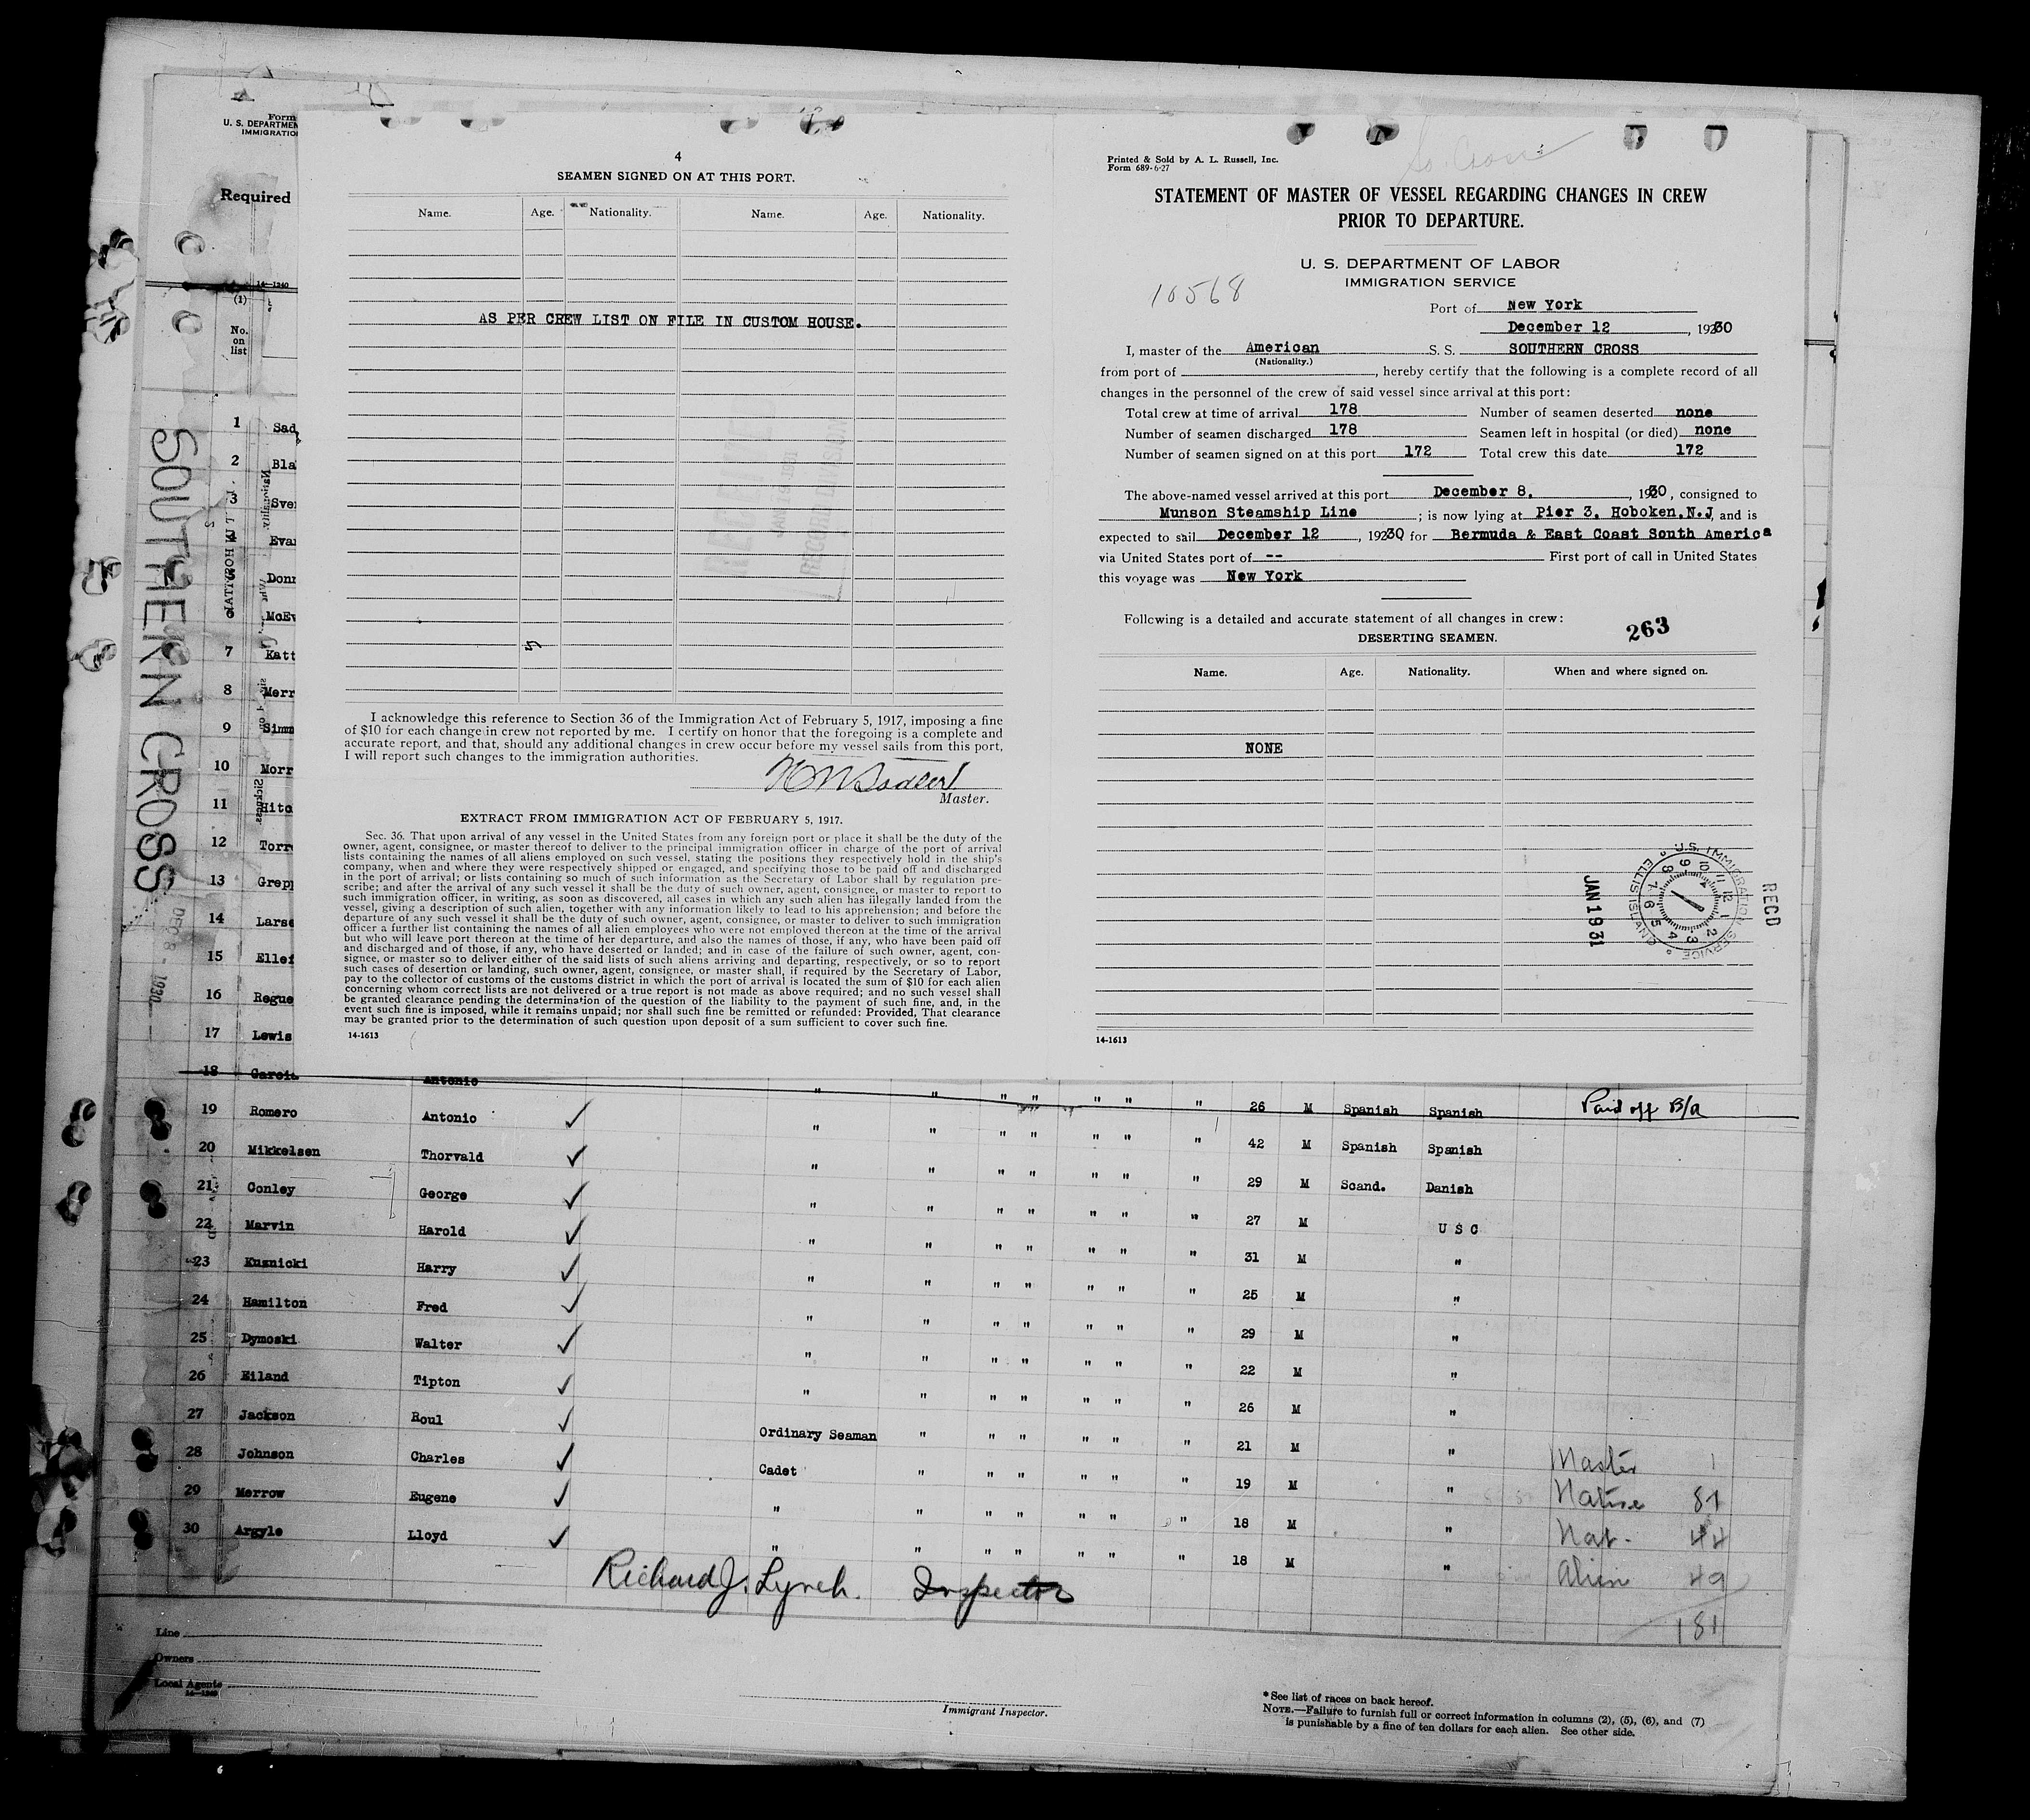 4
SEAMEN SIGNED ON AT THIS PORT.
Name. Age. Nationality. Name. Age. Nationality.
AS PER CREW LIST ON FILE IN CUSTOM HOUSE.
I acknowledge this reference to Section 36 of the Immigration Act of February 5, 1917, imposing a fine
of $10 for each change in crew not reported by me. I certify on honor that the foregoing is a complete and
accurate report, and that, should any additional changes in crew occur before my vessel sails from this port,
I will report such changes to the immigration authorities.
Master.
EXTRACT FROM IMMIGRATION ACT OF FEBRUARY 5, 1917.
Sec. 36. That upon arrival of any vessel in the United States from any foreign port or place it shall be the duty of the
owner, agent, consignee, or master thereof to deliver to the principal immigration officer in charge of the port of arrival
lists containing the names of all aliens employed on such vessel, stating the positions they respectively hold in the ship's
company, when and where they were respectively shipped or engaged, and specifying those to be paid off and discharged
in the port of arrival; or lists containing so much of such information as the Secretary of Labor shall by regulation pre-
scribe; and after the arrival of any such vessel it shall be the duty of such owner, agent, consignee, or master to report to
such immigration officer, in writing, as soon as discovered, all cases in which any such alien has illegally landed from the
vessel, giving a description of such alien, together with any information likely to lead to his apprehension; and before the
departure of any such vessel it shall be the duty of such owner, agent, consignee, or master to deliver to such immigration
officer a further list containing the names of all alien employees who were not employed thereon at the time of the arrival
but who will leave port thereon at the time of her departure, and also the names of those, if any, who have been paid off
and discharged and of those, if any, who have deserted or landed; and in case of the failure of such owner, agent, con-
signee, or master so to deliver either of the said lists of such aliens arriving and departing, respectively, or so to report
such cases of desertion or landing, such owner, agent, consignee, or master shall, if required by the Secretary of Labor,
pay to the collector of customs of the customs district in which the port of arrival is located the sum of $10 for each alien
concerning whom correct lists are not delivered or a true report is not made as above required; and no such vessel shall
be granted clearance pending the determination of the question of the liability to the payment of such fine, and, in the
event such fine is imposed, while it remains unpaid; nor shall such fine be remitted or refunded: Provided, That clearance
may be granted prior to the determination of such question upon deposit of a sum sufficient to cover such fine.
14-1613
So. Cross
Printed & Sold by A. L. Russell, Inc.
Form 689-6-27
STATEMENT OF MASTER OF VESSEL REGARDING CHANGES IN CREW
PRIOR TO DEPARTURE.
U. S. DEPARTMENT OF LABOR
IMMIGRATION SERVICE
10568
Port of New York
December 12, 1930
I, master of the American S. S. SOUTHERN CROSS
(Nationality.)
from port of , hereby certify that the following is a complete record of all
changes in the personnel of the crew of said vessel since arrival at this port:
Total crew at time of arrival 178 Number of seamen deserted none
Number of seamen discharged 178 Seamen left in hospital (or died) none
Number of seamen signed on at this port 172 Total crew this date 172
The above-named vessel arrived at this port December 8, 1930, consigned to
Munson Steamship Line ; is now lying at Pier 3, Hoboken,N.J, and is
expected to sail December 12, 1930 for Bermuda & East Coast South America
via United States port of -- First port of call in United States
this voyage was New York
Following is a detailed and accurate statement of all changes in crew:
DESERTING SEAMEN. 263
Name. Age. Nationality. When and where signed on.
NONE
U.S. IMMIGRATION SERVICE ELLIS ISLAND
RECD
JAN 19 31
14-1613
Form
U. S. DEPARTMEN
IMMIGRATIO
Required
14-1240
(1)
No.
on
list
SOUTHERN CROSS
DEC 8 - 1930
1 Sad
2 Bla
3 Sve
4 Eva
5 Don
6 McEv
7 Katt
8 Merr
9 Simm
10 Morr
11 Hitc
12 Torr
13 Grep
14 Larse
15 Ellef
16 Regue
17 Lewis
18 Garcia Antonio " " " " " " " 26 M Spanish Spanish Paid off B/a
19 Romero Antonio " " " " " " " 42 M Spanish Spanish
20 Mikkelsen Thorvald " " " " " " " 29 M Scand. Danish
21 Conley George " " " " " " " 27 M U S C
22 Marvin Harold " " " " " " " 31 M "
23 Kusnicki Harry " " " " " " " 25 M "
24 Hamilton Fred " " " " " " " 29 M "
25 Dymoski Walter " " " " " " " 22 M "
26 Eiland Tipton " " " " " " " 26 M "
27 Jackson Roul Ordinary Seaman " " " " " " 21 M "
28 Johnson Charles Cadet " " " " " " 19 M "
29 Merrow Eugene " " " " " " " 18 M "
30 Argyle Lloyd " " " " " " " 18 M "
Master 1
Native 87
Nat. 44
Alien 49
181
Richard J. Lynch. Inspector
Line
Owners
Local Agents
Immigrant Inspector.
*See list of races on back hereof.
NOTE.—Failure to furnish full or correct information in columns (2), (5), (6), and (7)
is punishable by a fine of ten dollars for each alien. See other side.